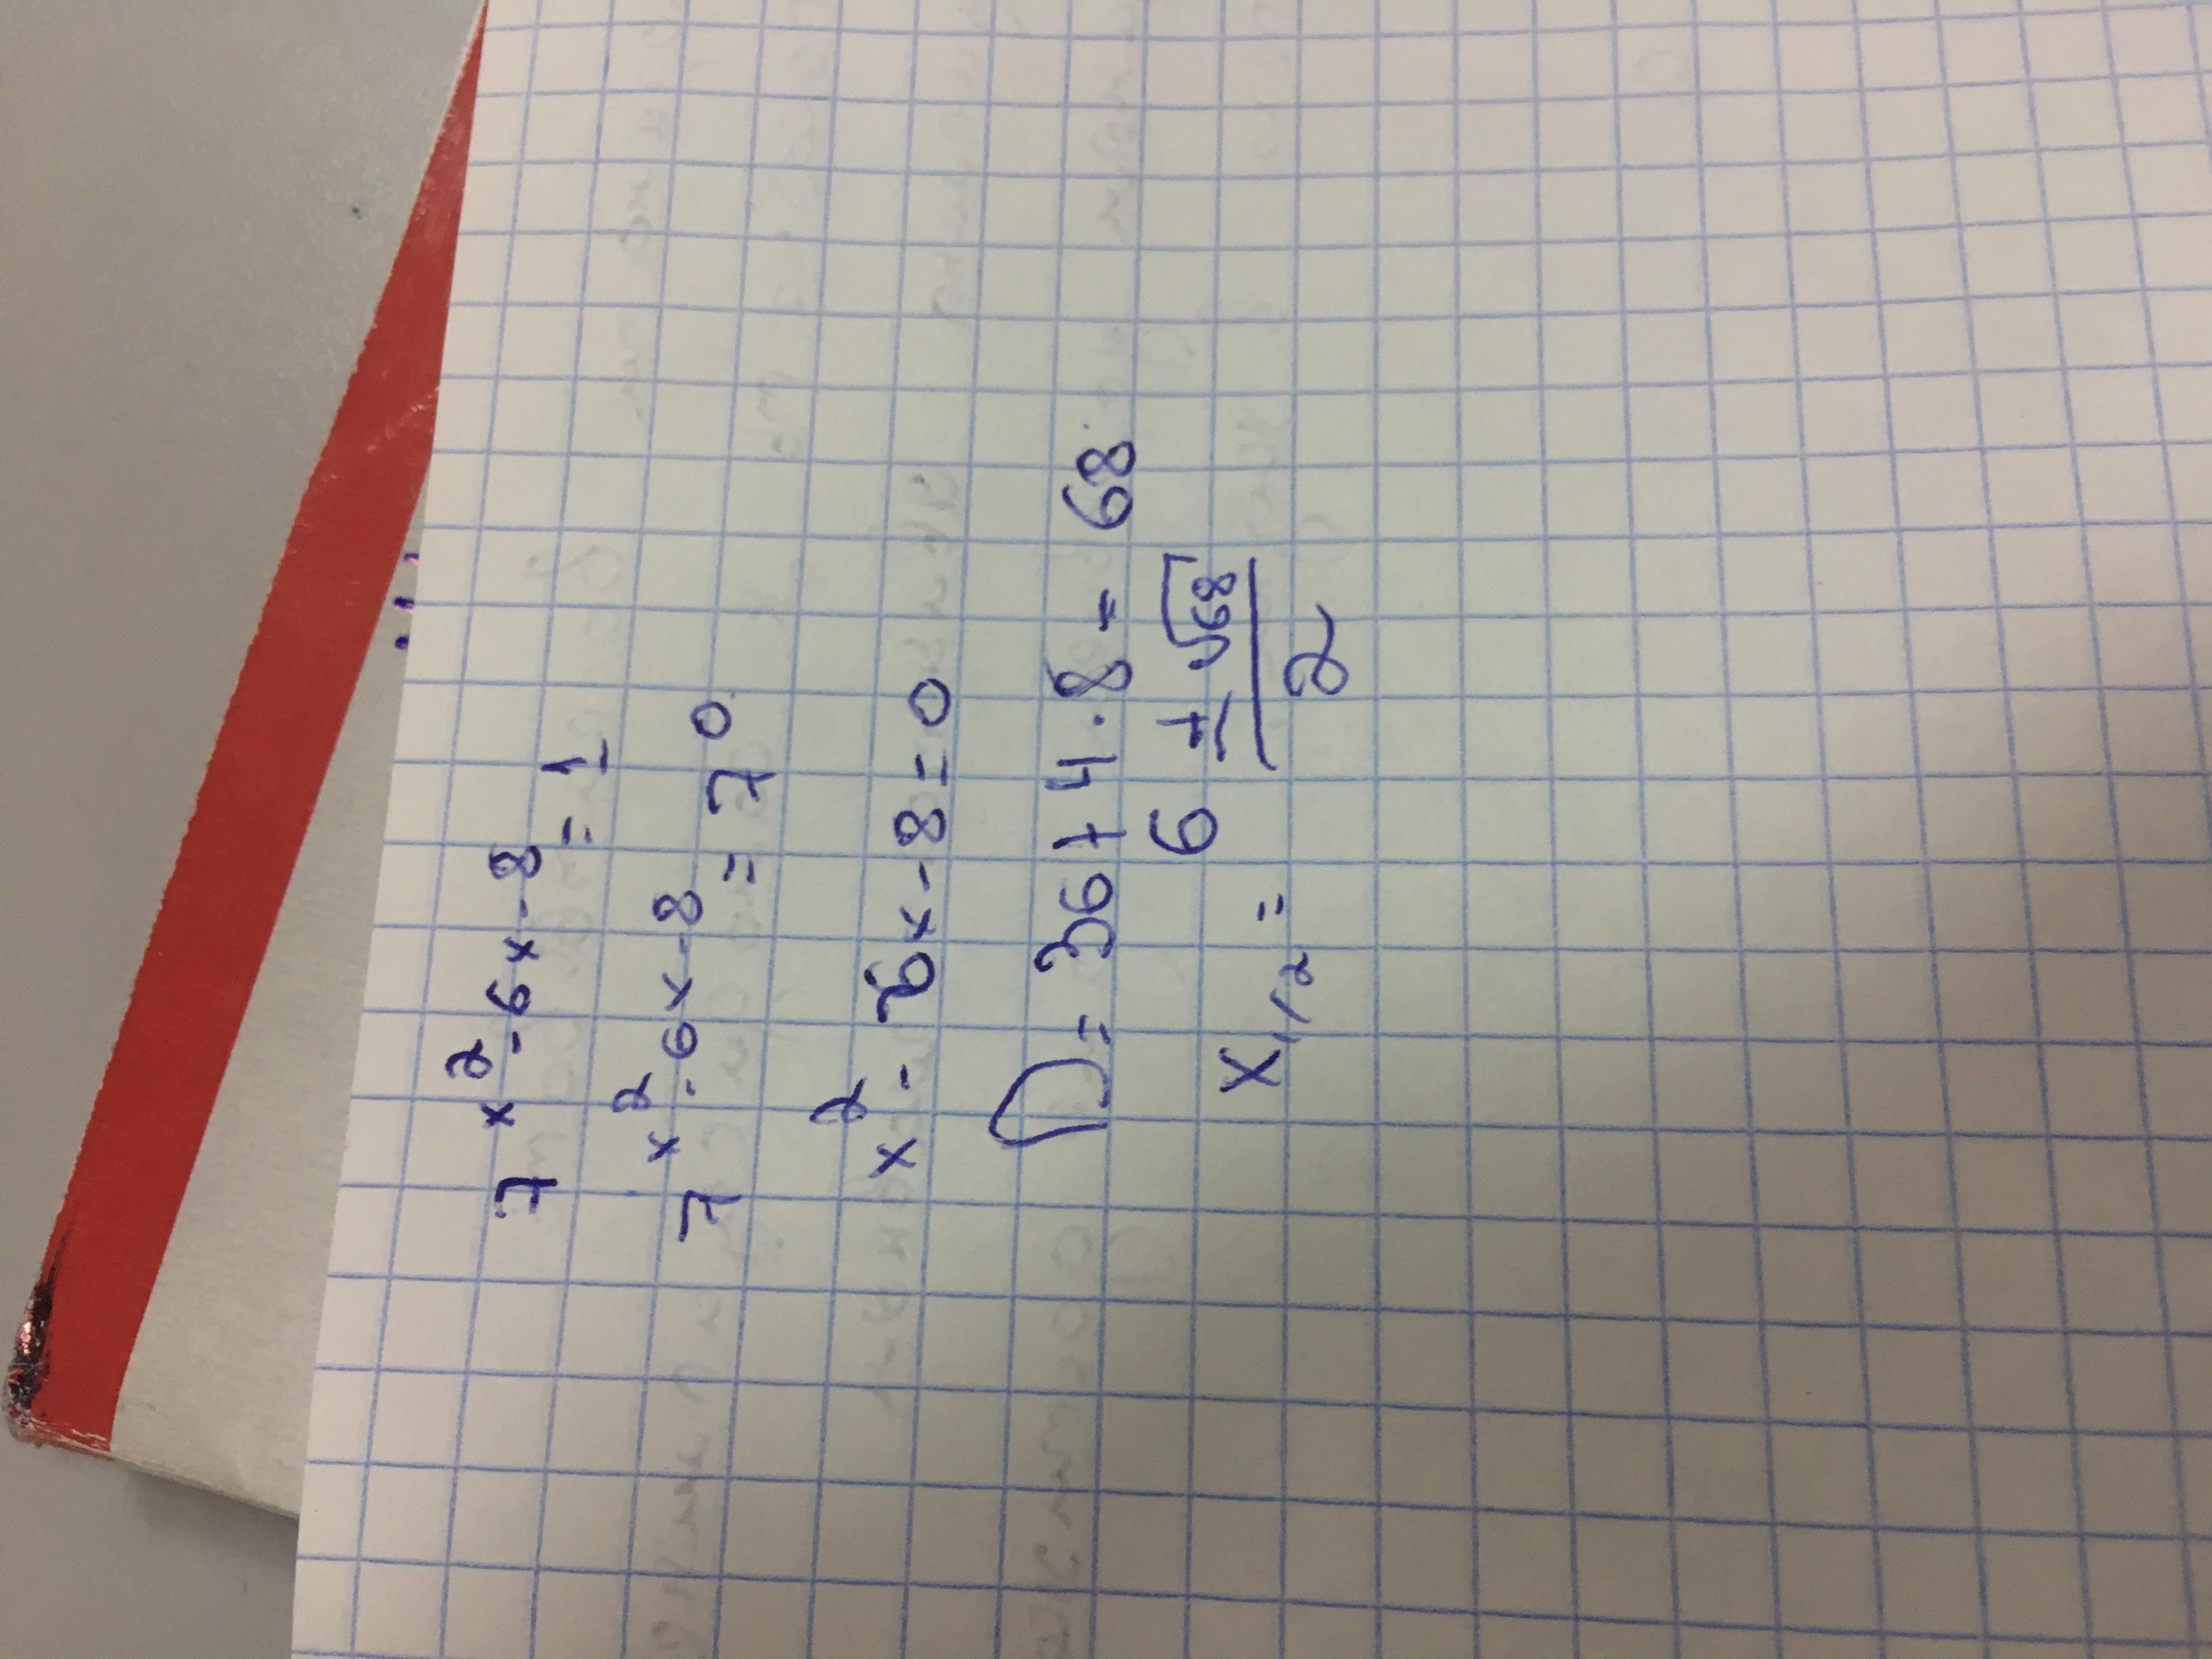 7^{x^2-6x-8} = 1
7^{x^2-6x-8} = 7^0
x^2-6x-8=0
D = 36+4·8 = 68
x_{1/2} = \frac{6 ± √68}{2}